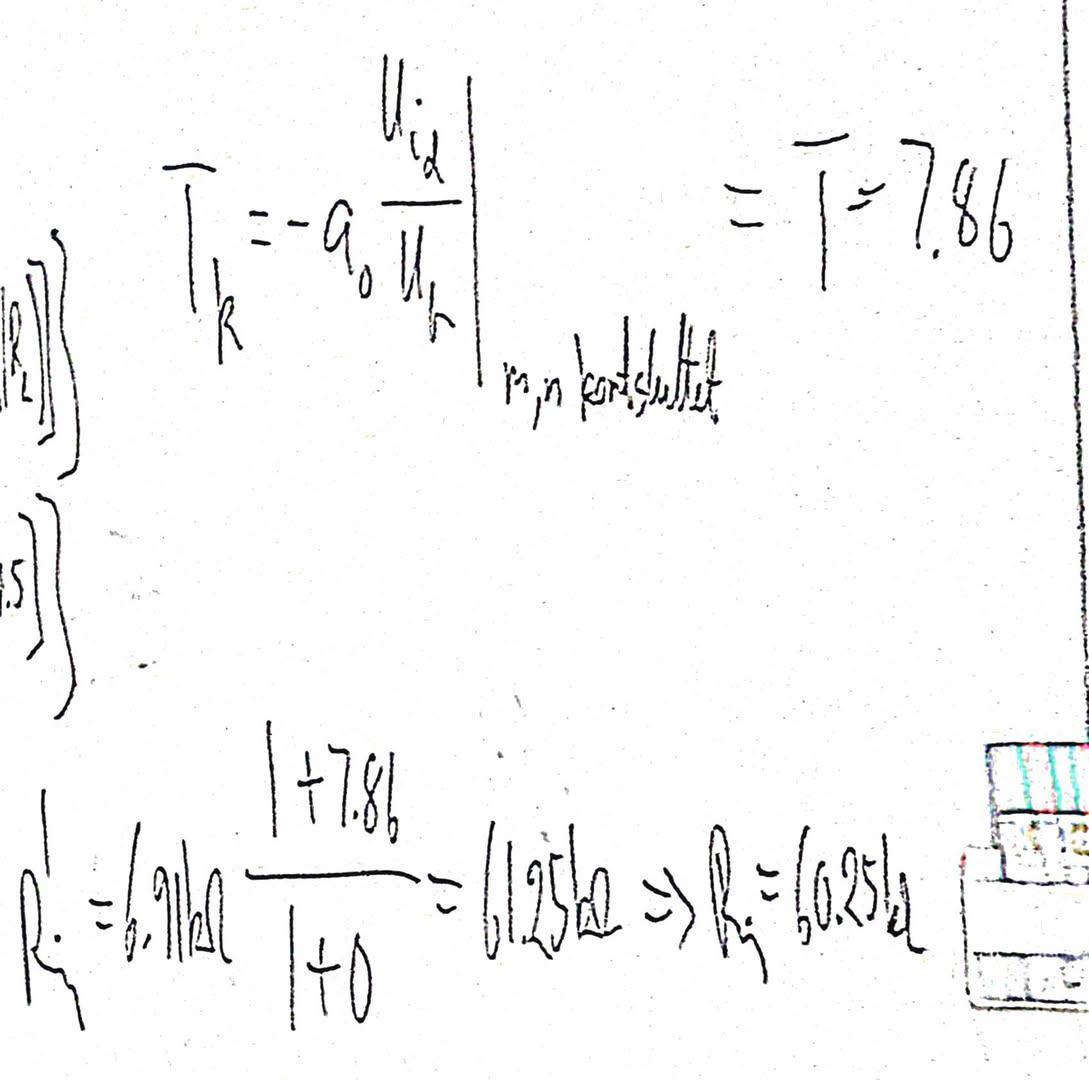 T_k = -a_0 U_id / U_b | m,n kortsluttet = T = 7.86
|R_L)]}
.5]}
R_i' = 6.91kΩ (1+7.86)/(1+0) = 61.25kΩ => R_i = 60.25kΩ